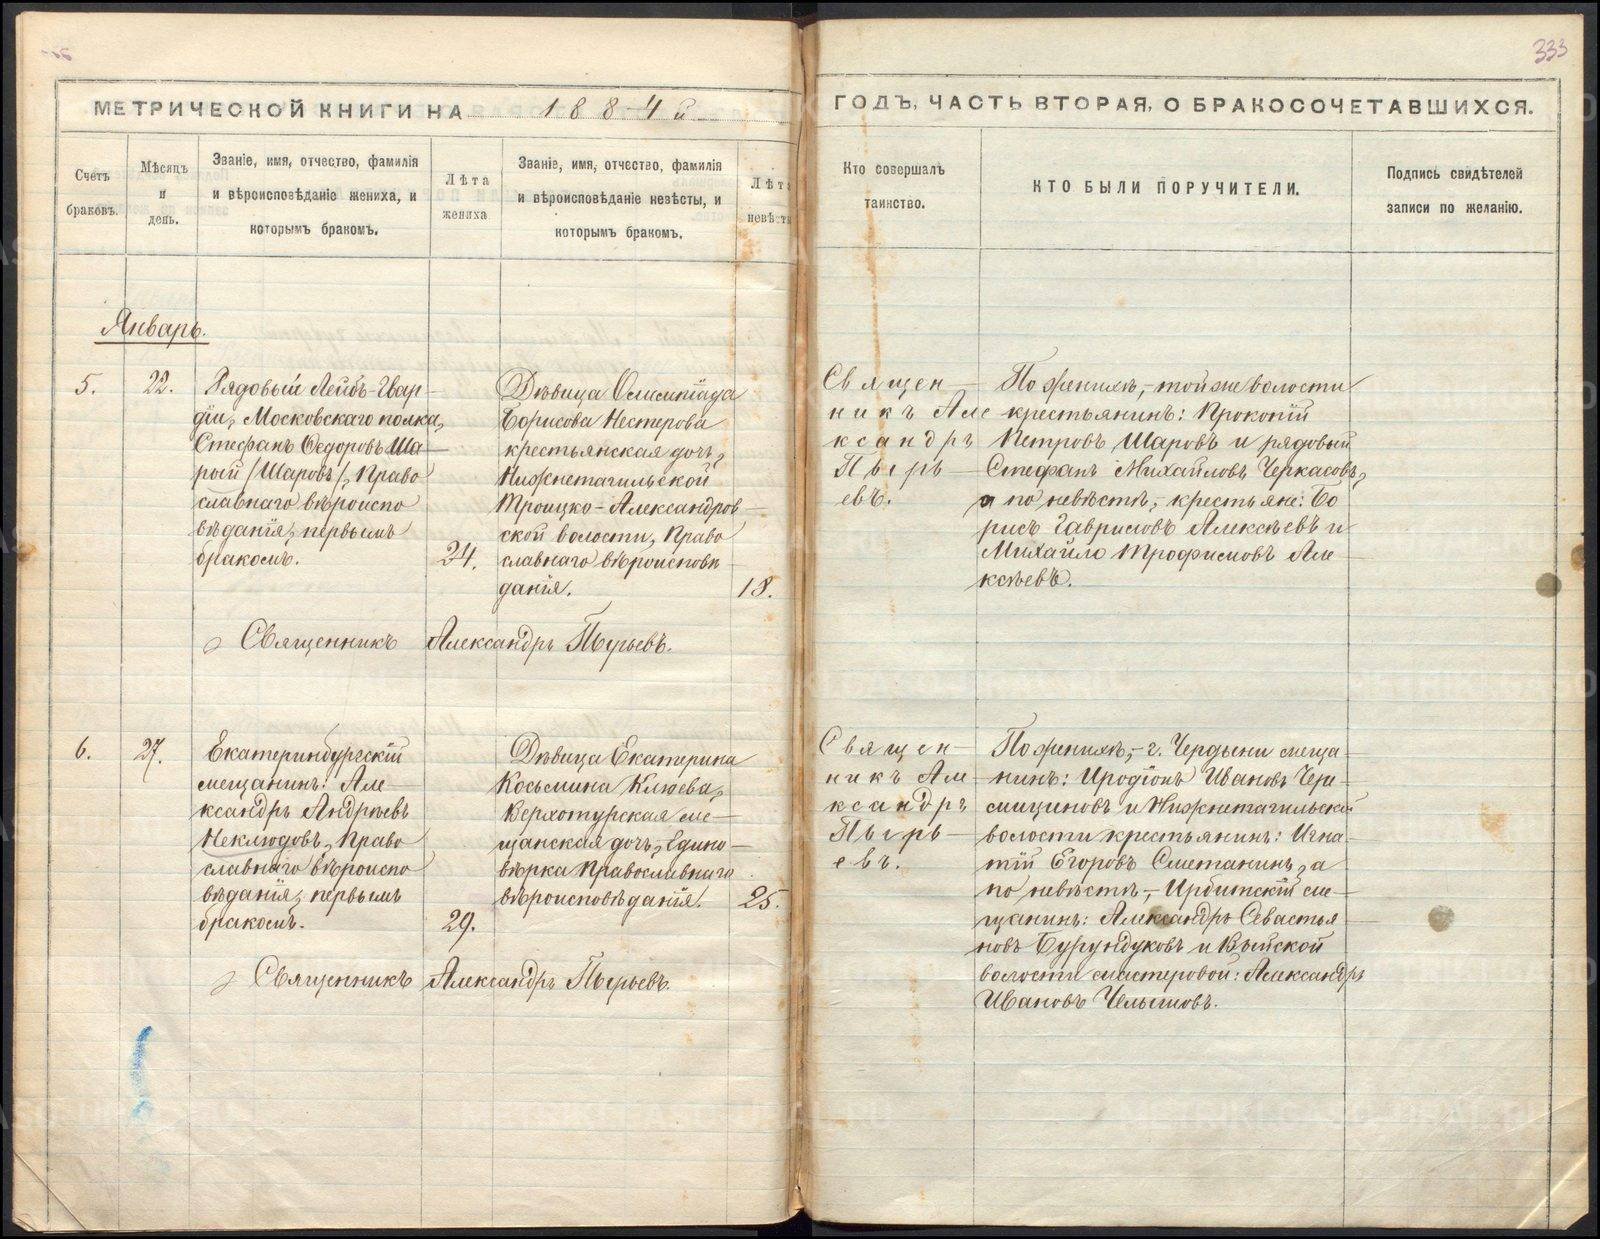 333
МЕТРИЧЕСКОЙ КНИГИ НА 1884й
ГОДЪ, ЧАСТЬ ВТОРАЯ, О БРАКОСОЧЕТАВШИХСЯ.
Счетъ
браковъ.
Мѣсяцъ
и
день.
Званіе, имя, отчество, фамилія
и вѣроисповѣданіе жениха, и
которымъ бракомъ.
Лѣта
жениха
Званіе, имя, отчество, фамилія
и вѣроисповѣданіе невѣсты, и
которымъ бракомъ.
Лѣта
невѣсты
Кто совершалъ
таинство.
КТО БЫЛИ ПОРУЧИТЕЛИ.
Подпись свидѣтелей
записи по желанію.
Январь.
5.
22.
Рядовый Лейбъ-Гвар-
діи, Московскаго полка,
Стефанъ Ѳедоровъ Ша-
рый /Шаровъ/, Право
славнаго вѣроиспо
вѣданія, первымъ
бракомъ.
24.
Дѣвица Олимпіада
Борисова Нестерова
крестьянская дочь,
Нижнетагильской
Троицко-Александров-
ской волости, Право
славнаго вѣроисповѣ-
данія.
18.
Священ-
никъ Але
ксандръ
Пырь-
евъ.
По женихѣ,- той же волости
крестьянинъ: Прокопій
Петровъ Шаровъ и рядовый
Стефанъ Михайловъ Черкасовъ,
а по невѣстѣ,- крестьяне: Бо
рисъ Гавриловъ Алексѣевъ и
Михайло Трофимовъ Але-
ксѣевъ.
Священникъ Александръ Пырьевъ.
6.
27.
Екатеринбургскій
мещанинъ: Але
ксандръ Андрѣевъ
Неклюдовъ, Право
славнаго вѣроиспо
вѣданія, первымъ
бракомъ.
29.
Дѣвица Екатерина
Косьмина Клюева,
Верхотурская ме-
щанская дочь, Едино-
вѣрка Православнаго
вѣроисповѣданія.
25.
Священ-
никъ Але-
ксандръ
Пырь-
евъ.
По женихѣ,- г. Чердыни меща-
нинъ: Иродіонъ Ивановъ Чере-
мициновъ и Нижнетагильской
волости крестьянинъ: Игна-
тій Егоровъ Сметанинъ, а
по невѣстѣ,- Ирбитскій ме-
щанинъ: Александръ Севастья-
новъ Бурундуковъ и Выйской
волости мастеровой: Александръ
Ивановъ Челышовъ.
Священникъ Александръ Пырьевъ.
METRIKI.GASO-URAL.RU